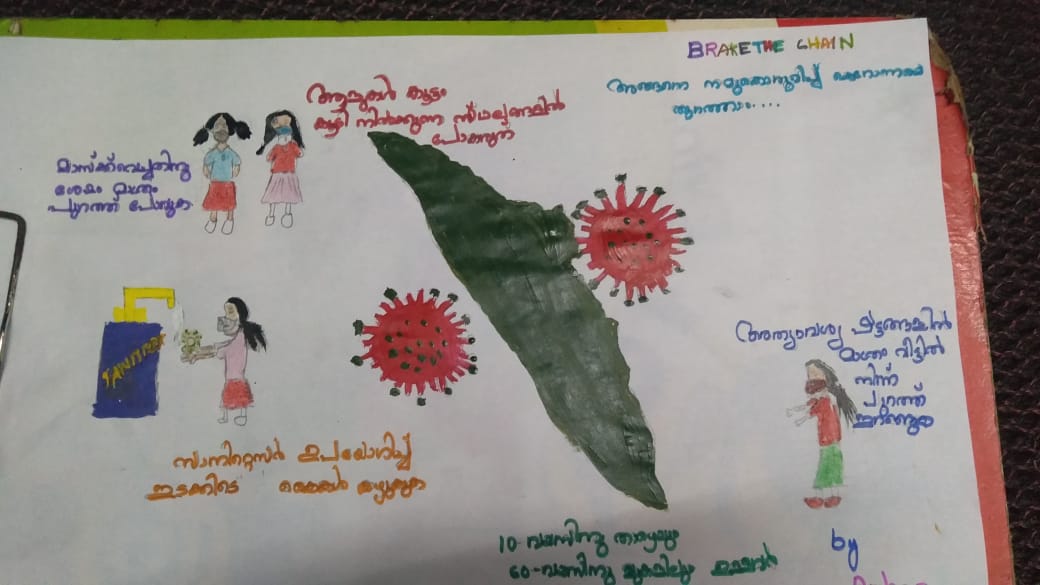 BRAKE THE CHAIN
അങ്ങനെ നമുക്കൊരുമിച്ച് കൊറോണയെ
തുരത്താം....
ആളുകൾ കൂട്ടം
കൂടി നിൽക്കുന്ന സ്ഥലങ്ങളിൽ
പോകരുത്
മാസ്ക്ക് വെച്ചതിനു
ശേഷം മാത്രം
പുറത്ത് പോവുക
SANITIZER
സാനിറ്റൈസർ ഉപയോഗിച്ച്
ഇടക്കിടെ കൈകൾ കഴുകുക
അത്യാവശ്യ ഘട്ടങ്ങളിൽ
മാത്രം വീട്ടിൽ
നിന്ന്
പുറത്ത്
ഇറങ്ങുക
10-വയസിനു താഴെയും
60-വയസിനു മുകളിലും ഉള്ളവർ
by